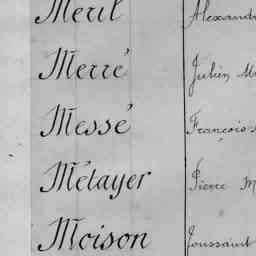 Meril Alexandr
Merré Julien M
Messé François
Métayer Pierre M
Moison Toussaint